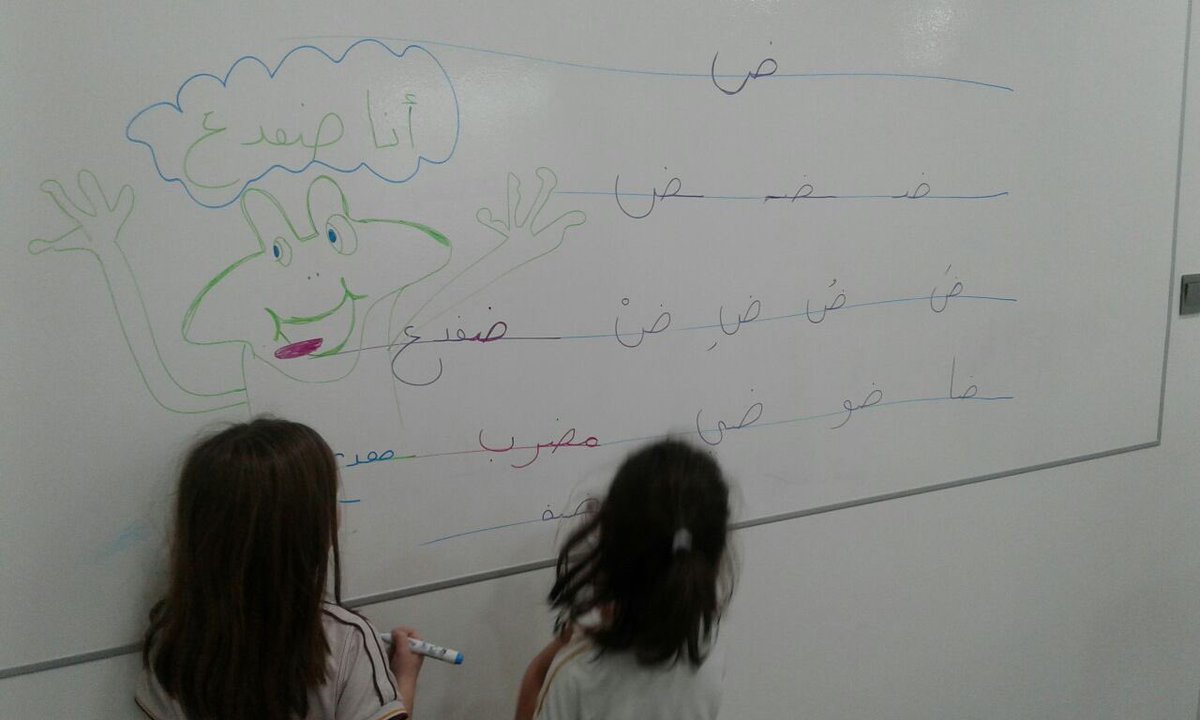 ض
أنا ضفدع
ضـ ـضـ ـض
ضَ ضُ ضِ ضْ ضفدع
ضا ضو ضي مضرب